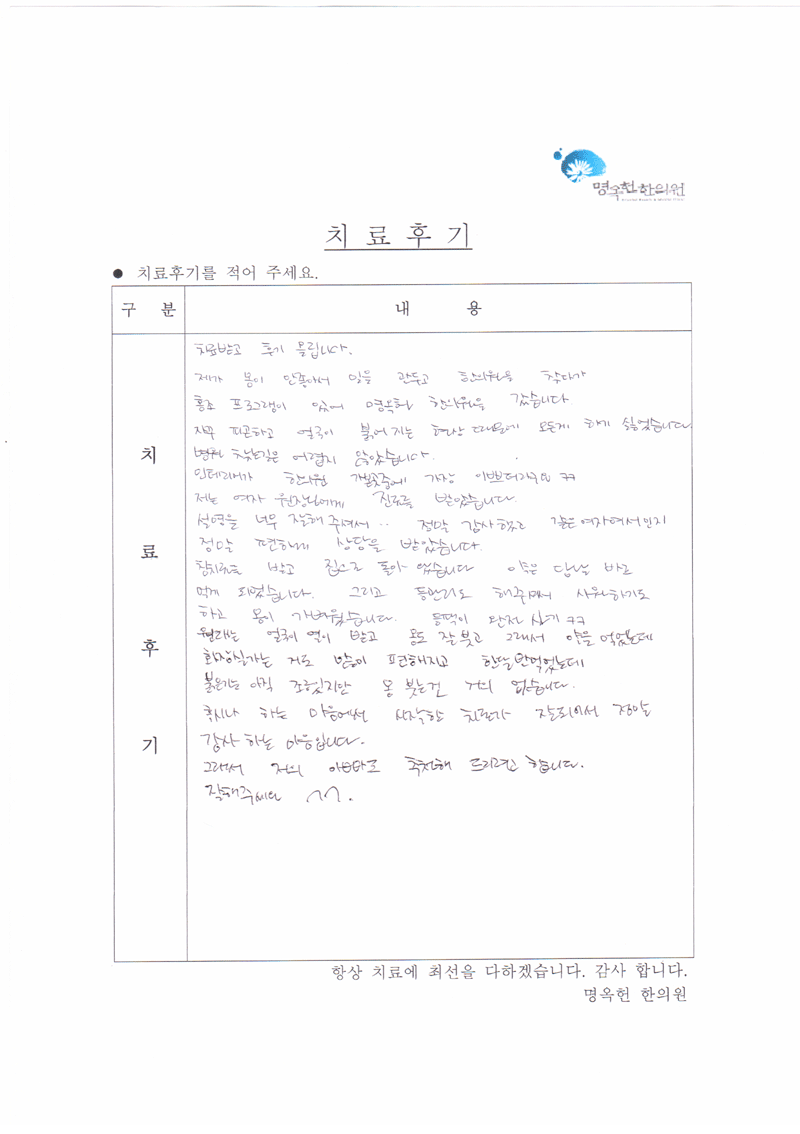 명옥헌한의원
치 료 후 기
● 치료후기를 적어 주세요.
구 분
내 용
치
료
후
기
치료받고 후기 올립니다.
제가 몸이 안좋아서 일을 관두고 한의원을 찾다가
홍조 프로그램이 있어 명옥헌 한의원을 갔습니다
자꾸 피곤하고 얼굴이 붉어지는 현상 때문에 모든게 하기 싫었습니다.
병원 찾는길은 어렵지 않았습니다.
인테리어가 한의원 가본곳중에 가장 이쁘더라구요 ㅋㅋ
저는 여자 원장님에게 진료를 받았습니다
설명을 너무 잘해 주셔서.. 정말 감사했고 같은 여자여서인지
정말 편하게 상담을 받았습니다.
침치료를 받고 집으로 돌아 왔습니다 약은 담날 바로
먹게 되었습니다. 그리고 등관리도 해주면서 시원하기도
하고 몸이 가벼웠습니다. 완전 ㅋㅋ
원래는 얼굴이 열이 받고 몸도 잘 붓고 그래서 약을 먹었는데
화장실가는 거도 많이 편해지고 한달반먹었는데
붉은기는 아직 조금있지만 몸 붓는건 거의 없습니다.
혹시나 하는 마음에서 시작한 치료가 잘되어서 정말
감사 하는 마음입니다.
그래서 저희 아빠도 추천해 드리려고 합니다.
잘해주세요 ^^.
항상 치료에 최선을 다하겠습니다. 감사 합니다.
명옥헌 한의원